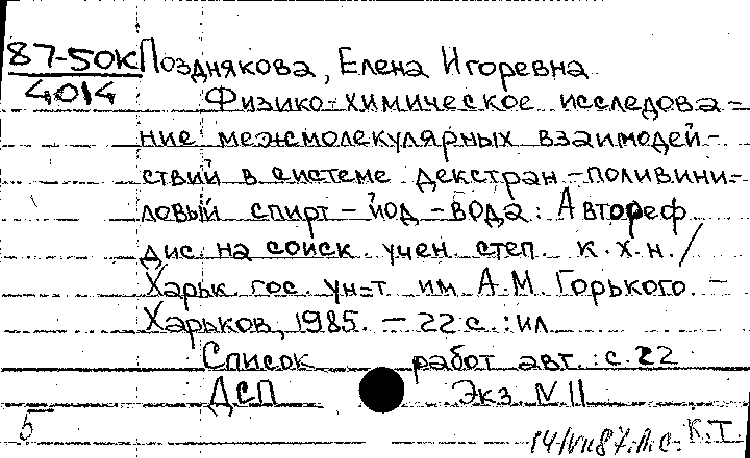 87-50К Позднякова, Елена Игоревна
4014 Физико-химическое исследова=
ние межмолекулярных взаимодей-
ствий в системе декстран-поливини-
ловый спирт - йод - вода: Автореф
дис. на соиск. учен. степ. к.х.н./
Харьк. гос. ун-т им А.М. Горького. -
Харьков, 1985. - 22 с.: ил
Список работ авт.: с. 22
ДСП Экз. N 11
5
К.Т.